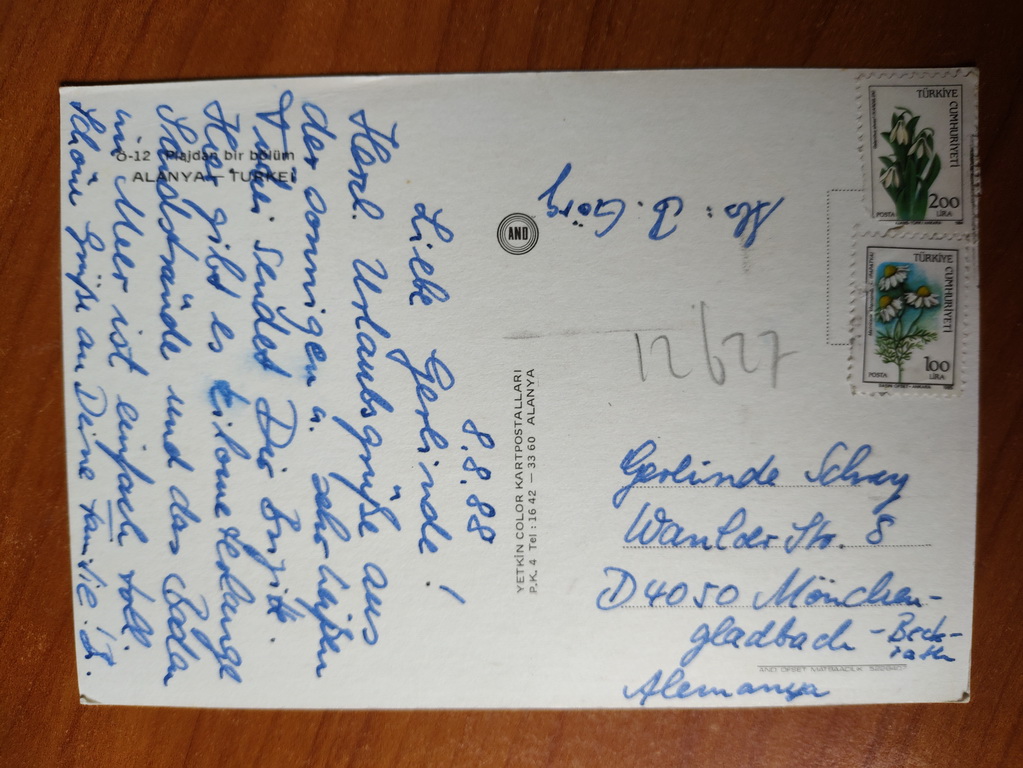 8.8.88
Liebe Gerlinde!
Herzl. Urlaubsgrüße aus
der sonnigen u. sehr heißen
Türkei sendet Dir Brigitt.
Hier gibt es kilometerlange
Sandstrände und das Baden
im Meer ist einfach toll.
Schöne Grüße an Deine Familie! B.
Ö-12 Plajdan bir bölüm
ALANYA — TURKEI
Abs: B. Görg
AND
YETKİN COLOR KARTPOSTALLARI
P.K. 4 Tel : 16 42 — 33 60 ALANYA
12627
TÜRKİYE CUMHURİYETİ
200
LİRA
POSTA
TÜRKİYE CUMHURİYETİ
100
LİRA
POSTA
Gerlinde Schrey
Wanloer Str. 8
D 4050 Mönchen-
gladbach - Beck-
rath
Alemanya
AND OFSET MATBAACILIK